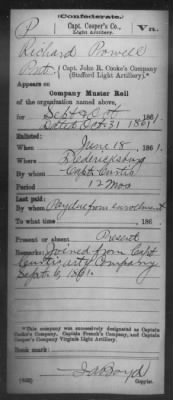 (Confederate.)
P Capt. Cooper's Co., Vn.
Light Artillery.*
Richard Powell
Pvt., Capt. John R. Cooke's Company
(Stafford Light Artillery).*
Appears on
Company Muster Roll
of the organization named above,
for Sept & Oct, 1861.
Dated Oct 31 1861
Enlisted:
When June 18, 1861.
Where Fredericksburg
By whom Capt. Curtis
Period 12 Mos
Last paid:
By whom Pay due from enrollment
To what time , 186 .
Present or absent Present
Remarks: Joined from Capt
Curtis Arty Company
Sept. 6, 1861.
*This company was successively designated as Captain
Cooke's Company, Captain French's Company, and Captain
Cooper's Company Virginia Light Artillery.
Book mark:
Boyd
Copyist.